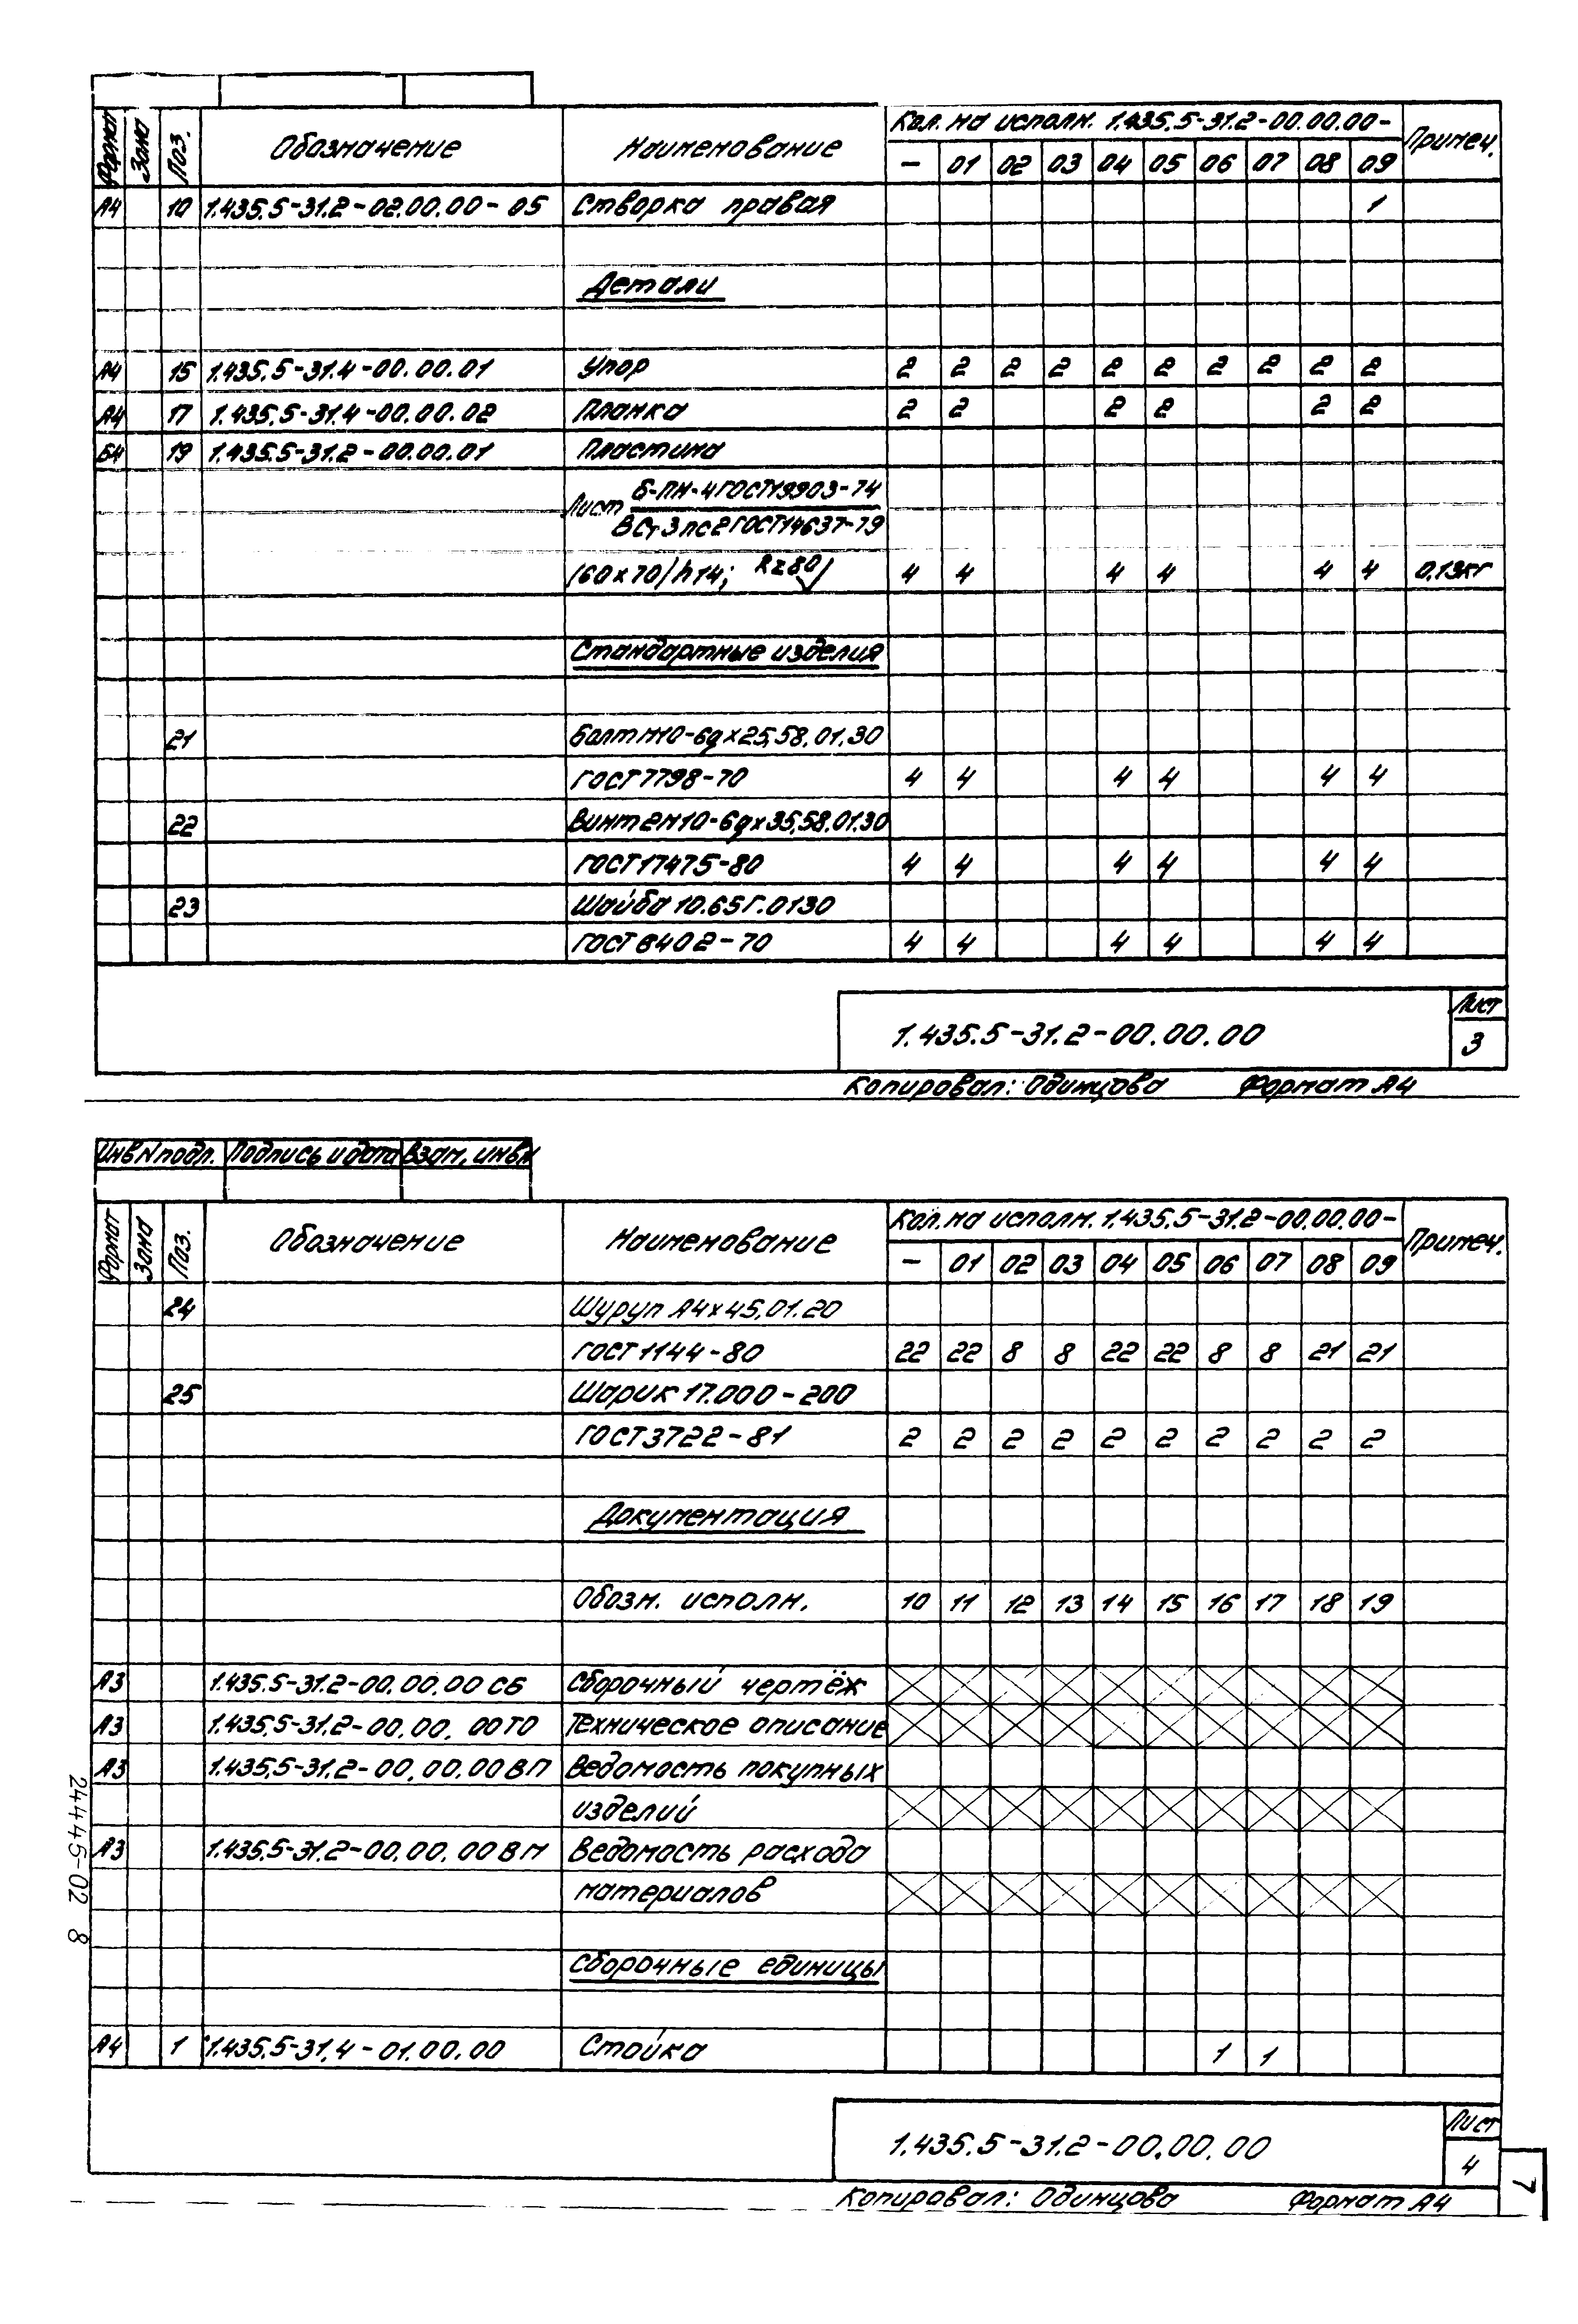 Формат Зона Поз. Обозначение Наименование Кол. на исполн. 1.435.5-31.2-00.00.00- Примеч.
— 01 02 03 04 05 06 07 08 09
А4 10 1.435.5-31.2-02.00.00-05 Створка правая 1
Детали
А4 15 1.435.5-31.4-00.00.01 Упор 2 2 2 2 2 2 2 2 2 2
А4 17 1.435.5-31.4-00.00.02 Планка 2 2 2 2 2 2
Б4 19 1.435.5-31.2-00.00.01 Пластина
Лист Б-ПН-4ГОСТ19903-74
ВСт3пс2ГОСТ14637-79
160х70/h14; Rz80 4 4 4 4 4 4 0,13кг
Стандартные изделия
21 Болт М10-6gх25,58.01.30
ГОСТ7798-70 4 4 4 4 4 4
22 Винт2М10-6gх35,58.01.30
ГОСТ17475-80 4 4 4 4 4 4
23 Шайба 10.65Г.0130
ГОСТ6402-70 4 4 4 4 4 4
1.435.5-31.2-00.00.00 Лист
3
Копировал: Одинцова Формат А4
Инв N подл. Подпись и дата Взам. инв N
Формат Зона Поз. Обозначение Наименование Кол. на исполн. 1.435.5-31.2-00.00.00- Примеч.
— 01 02 03 04 05 06 07 08 09
24 Шуруп А4х45.01.20
ГОСТ1144-80 22 22 8 8 22 22 8 8 21 21
25 Шарик 17.000-200
ГОСТ3722-81 2 2 2 2 2 2 2 2 2 2
Документация
Обозн. исполн. 10 11 12 13 14 15 16 17 18 19
А3 1.435.5-31.2-00.00.00 СБ Сборочный чертёж
А3 1.435.5-31.2-00.00.00ТО Техническое описание
А3 1.435.5-31.2-00.00.00 ВП Ведомость покупных
изделий
А3 1.435.5-31.2-00.00.00 ВМ Ведомость расхода
материалов
Сборочные единицы
А4 1 1.435.5-31.4-01.00.00 Стойка 1 1
24445-02 8
1.435.5-31.2-00.00.00 Лист
4
7
Копировал: Одинцова Формат А4